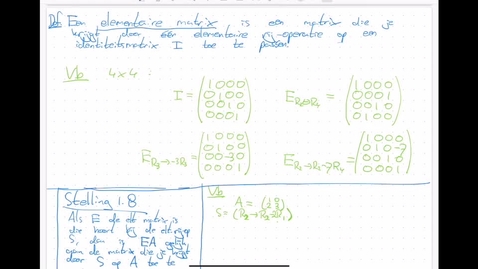 Def Een elementaire matrix is een matrix die je
krijgt door één elementaire rij-operatie op een
identiteitsmatrix I toe te passen.
Vb 4x4:
I = (1 0 0 0
0 1 0 0
0 0 1 0
0 0 0 1)
E R2↔R4 = (1 0 0 0
0 0 0 1
0 0 1 0
0 1 0 0)
E R3→-3R3 = (1 0 0 0
0 1 0 0
0 0 -3 0
0 0 0 1)
E R2→R2-7R4 = (1 0 0 0
0 1 0 -7
0 0 1 0
0 0 0 1)
Stelling 1.8
Als E de elt matrix is
die hoort bij de elt rijop
S, dan is EA gelijk
aan de matrix die je krijgt
door S op A toe te
Vb
A =
S = (R2 → R2 - 2R1)